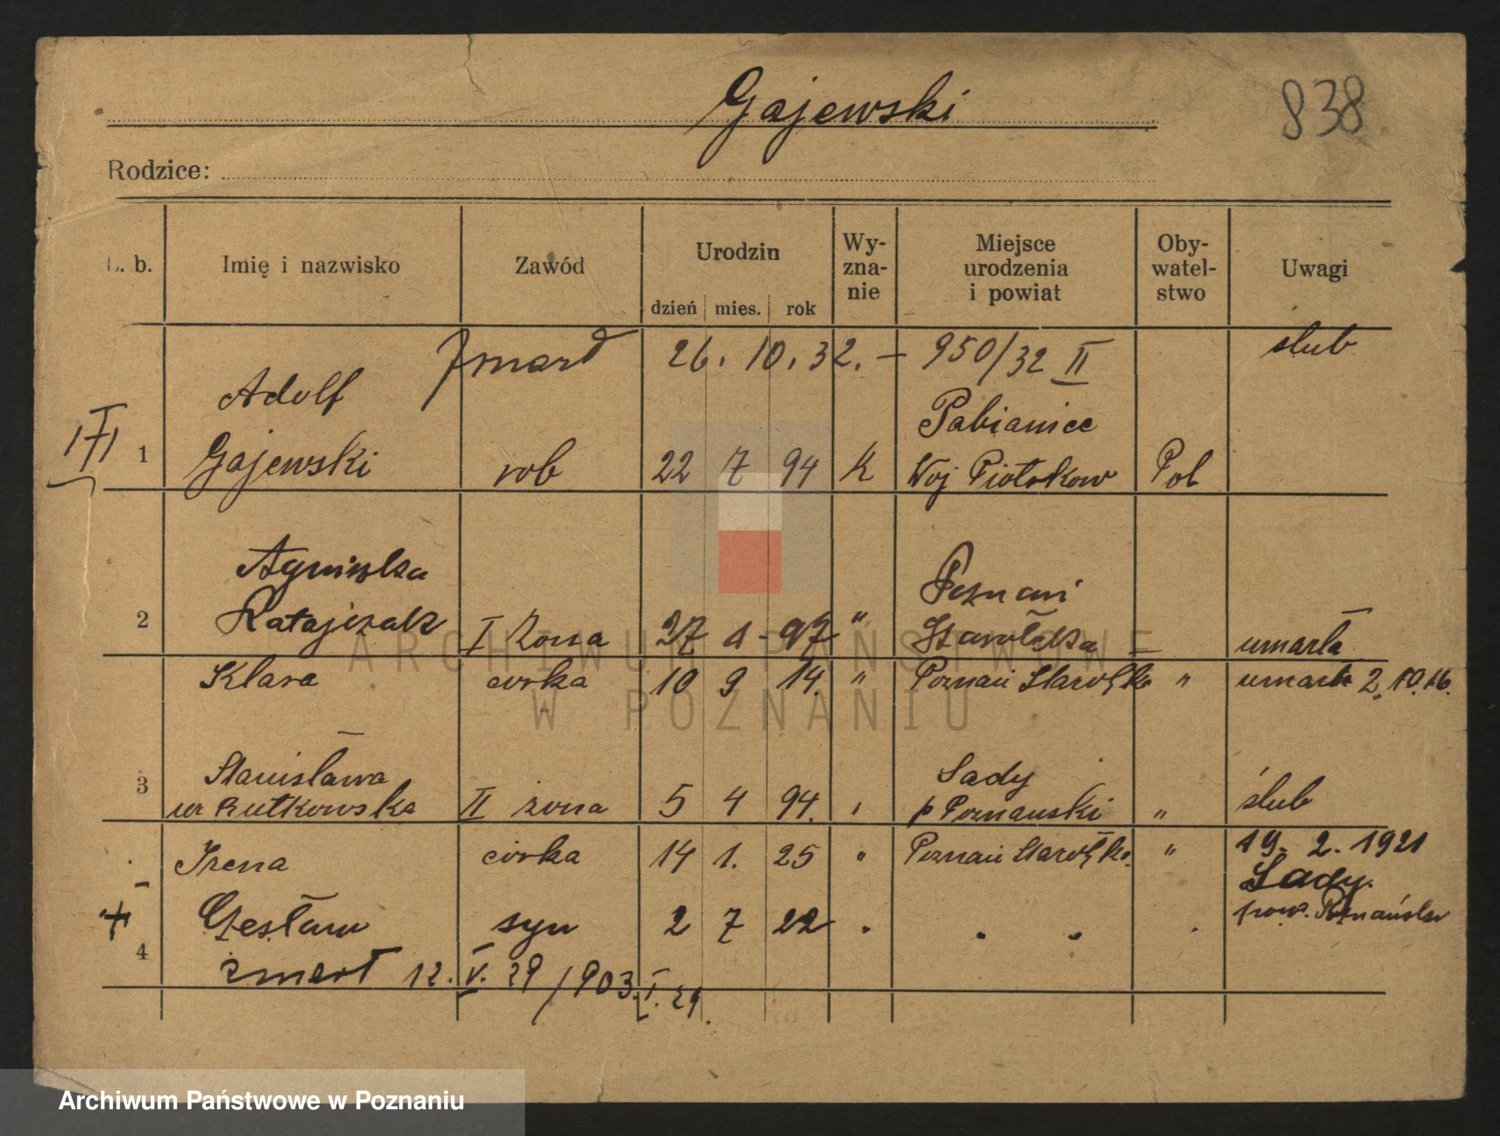 Gajewski
838
Rodzice:
L. b. Imię i nazwisko Zawód Urodzin dzień mies. rok Wyznanie Miejsce urodzenia i powiat Obywatelstwo Uwagi
zmarł 26. 10. 32. – 950/32 II ślub
Adolf Pabianice
1 Gajewski rob 22 7 94 K Woj Piotrkow Pol
Agnieszka Poznań
2 Ratajczak I żona 27 1 97 " Starołęka umarła
Klara corka 10 9 14. " Poznań Starołęka " umarła 2.10.16.
Stanisława Sady
3 ur Rutkowska II żona 5 4 94. " p Poznański " ślub
Irena córka 14 1. 25 " Poznań Starołęka " 19. 2. 1921
Sady.
Czesław syn 2 7 22 " " " " pow. Poznański
4 zmarł 12. V. 29/903. I. 29.
ARCHIWUM PAŃSTWOWE
W POZNANIU
Archiwum Państwowe w Poznaniu